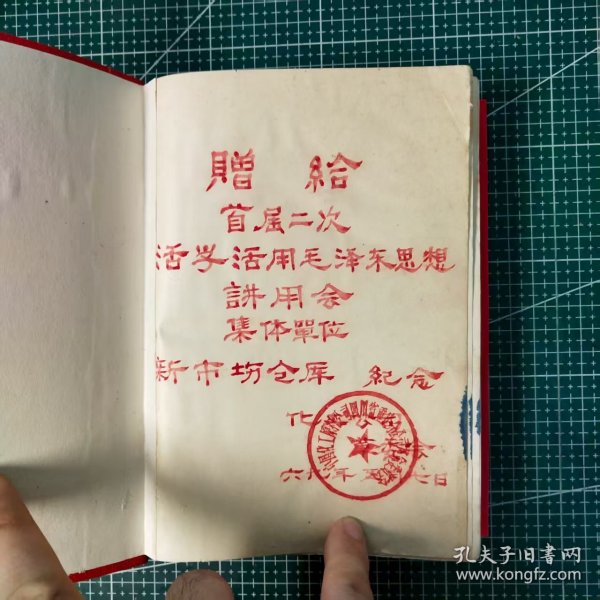 贈 给
首届二次
活学活用毛泽东思想
講用会
集体單位
新市场仓库 紀念
化
会
六九年五月七日
孔夫子旧书网
www.kongfz.com